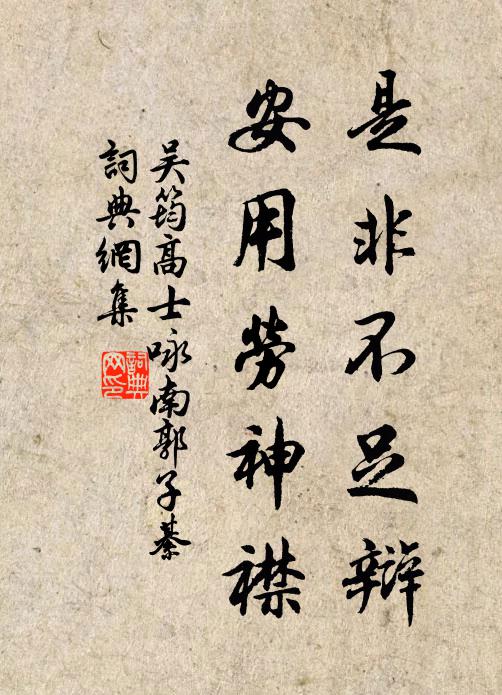 是非不足辯
安用勞神襟
吴筠高士咏南郭子綦
詞典網集
詞典網印